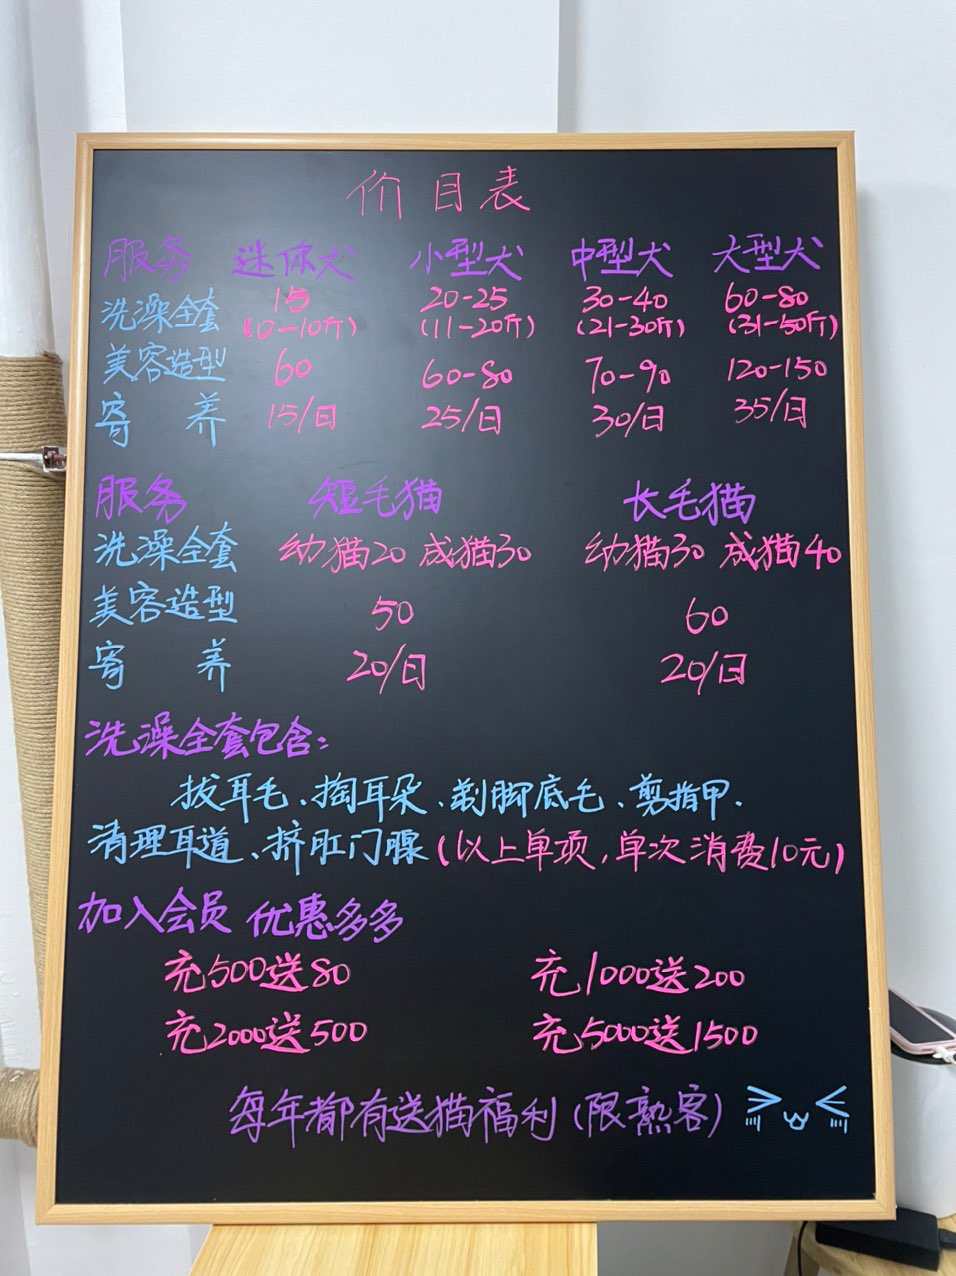 价目表
服务 迷你犬 小型犬 中型犬 大型犬
洗澡全套 15 20-25 30-40 60-80
(0-10斤) (11-20斤) (21-30斤) (31-50斤)
美容造型 60 60-80 70-90 120-150
寄养 15/日 25/日 30/日 35/日
服务 短毛猫 长毛猫
洗澡全套 幼猫20 成猫30 幼猫30 成猫40
美容造型 50 60
寄养 20/日 20/日
洗澡全套包含:
拔耳毛、掏耳朵、剃脚底毛、剪指甲.
清理耳道、挤肛门腺(以上单项,单次消费10元)
加入会员 优惠多多
充500送80 充1000送200
充2000送500 充5000送1500
每年都有送猫福利(限熟客)